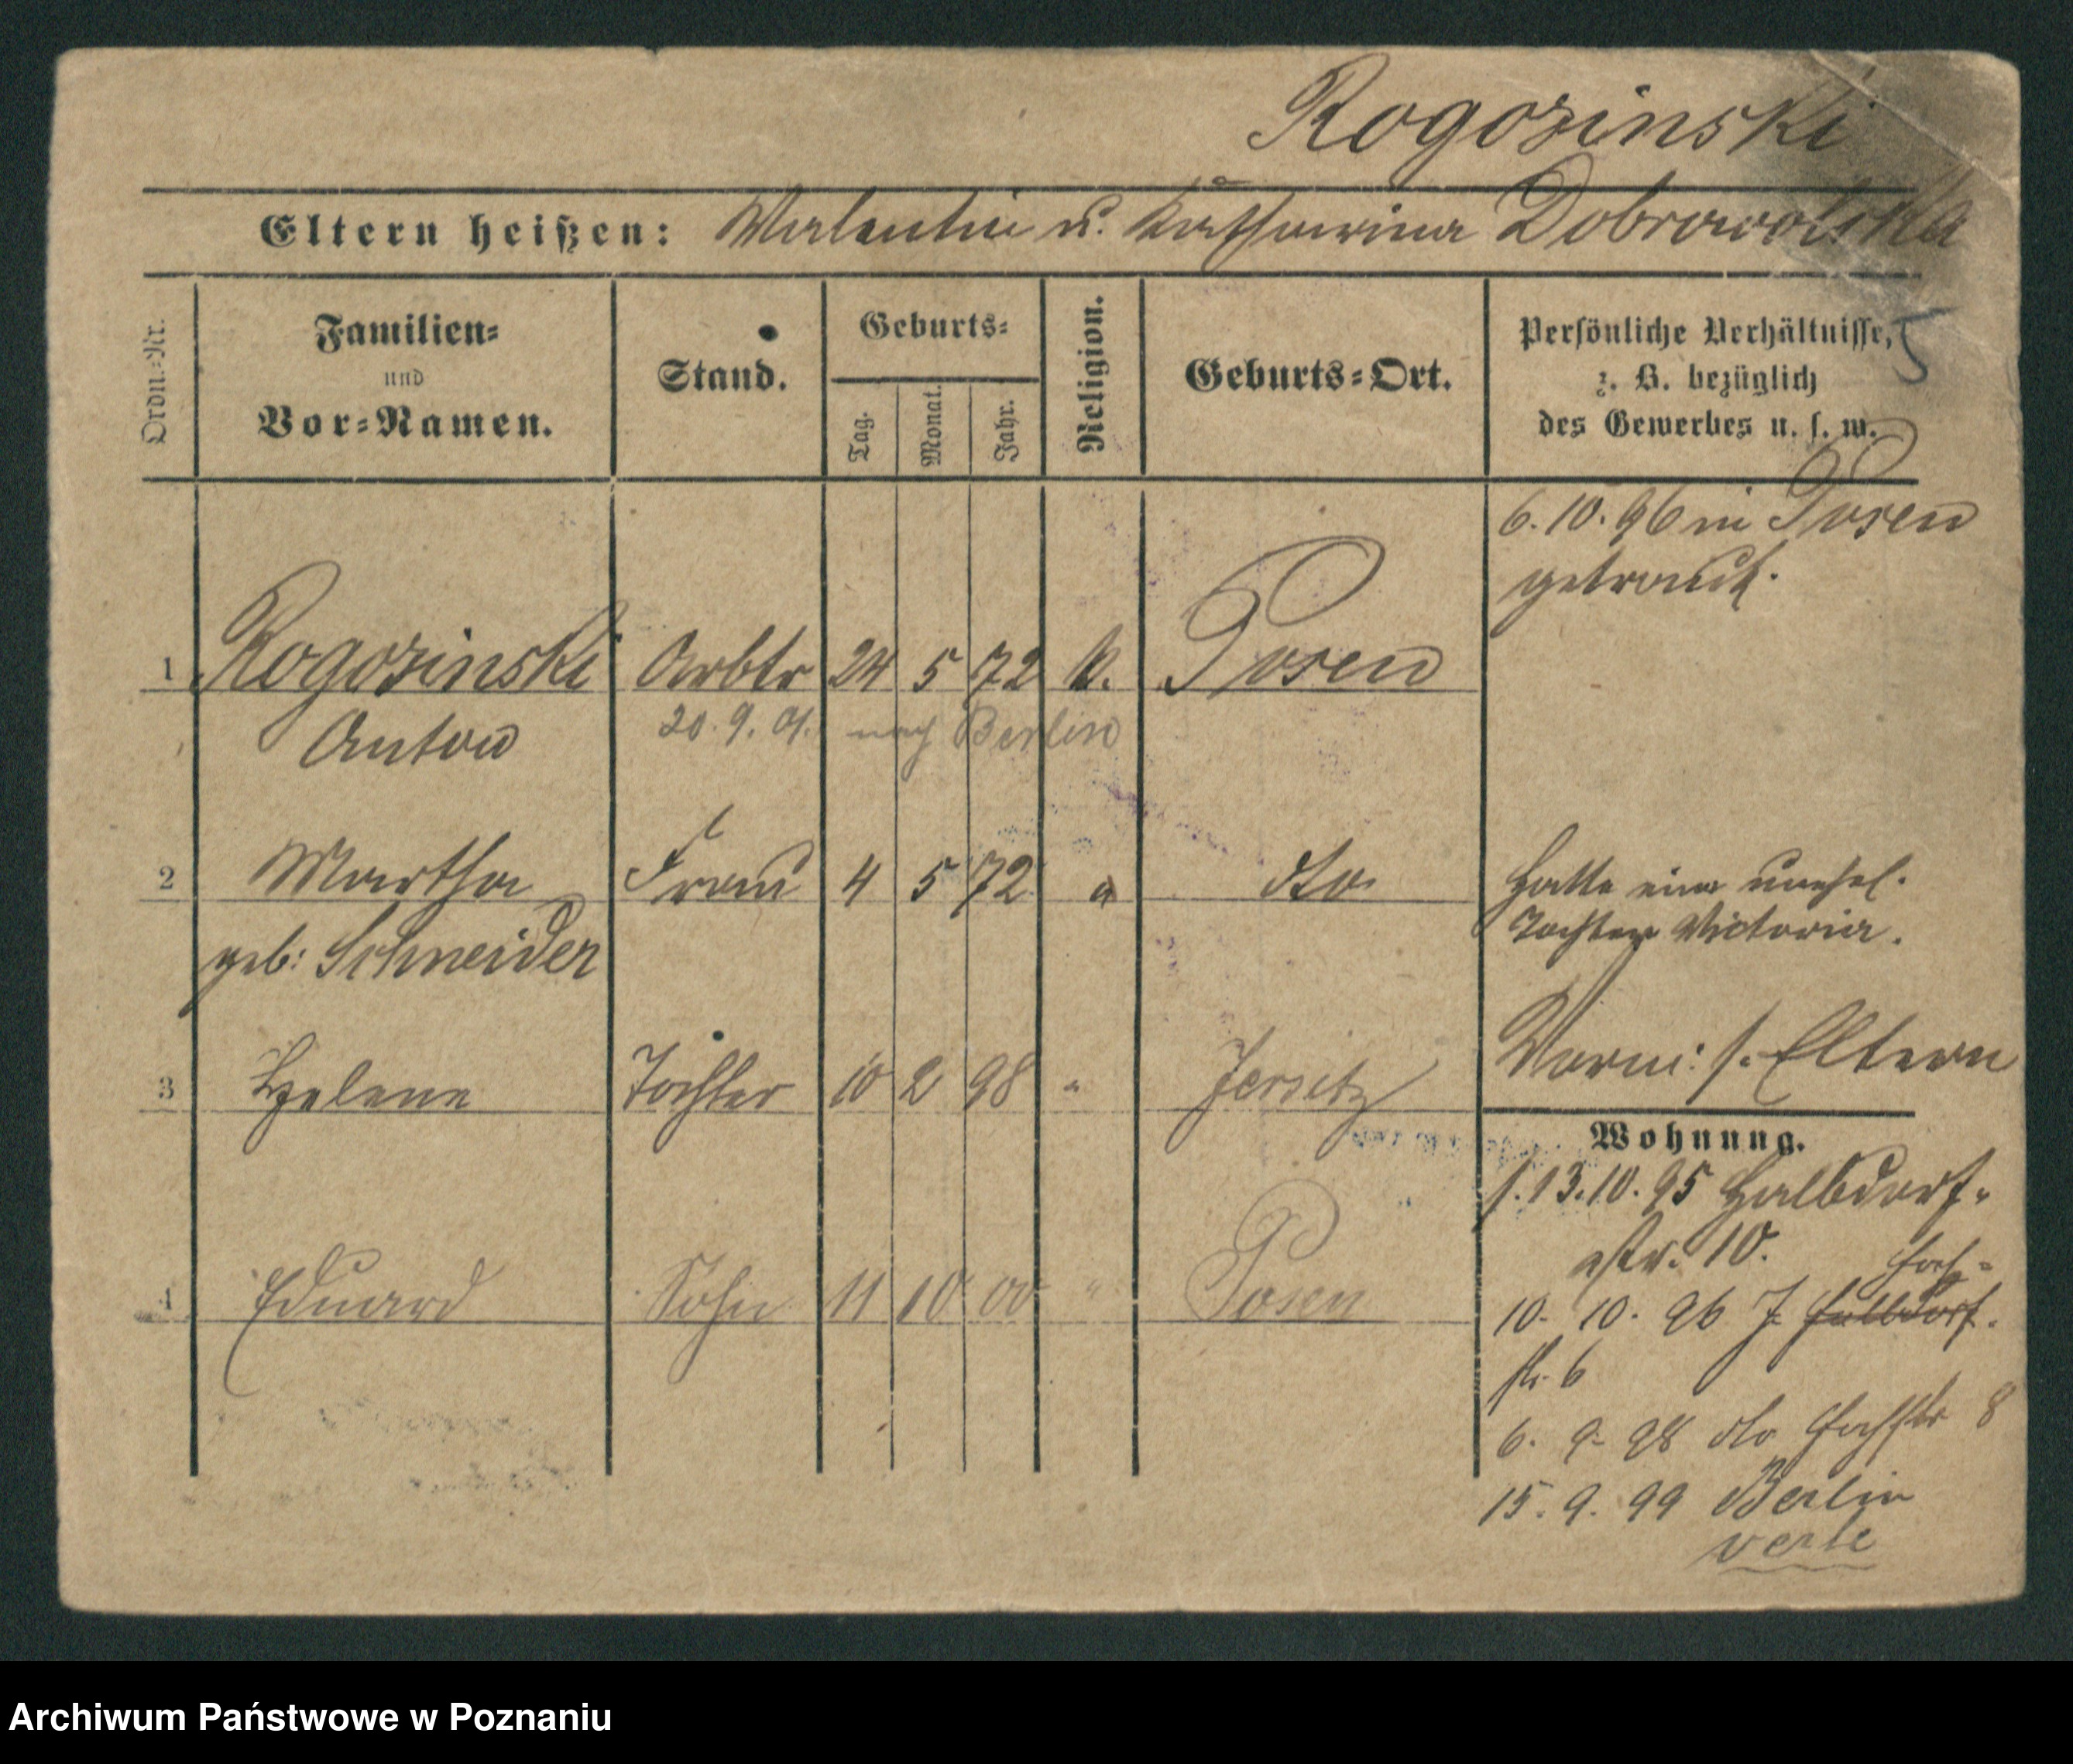 Rogozinski
Eltern heißen: Valentin u. Katharina Dobrowolska
Ordn.-Nr.
Familien-
und
Vor-Namen.
Stand.
Geburts-
Tag.
Monat.
Jahr.
Religion.
Geburts-Ort.
Persönliche Verhältnisse,
z. B. bezüglich
des Gewerbes u. s. w.
5
6.10.96 in Posen
getraut.
1 Rogozinski Arbtr 24 5 72 k. Posen
Anton 20. 9. 01. nach Berlin
2 Martha Frau 4 5 72 " dto
geb: Schneider
Hatte eine unehel.
Tochter Victoria.
3 Helene Tochter 10 2 98 " Jersitz
Vorm: s. Eltern
Wohnung.
s. 13.10.95 Halbdorf-
str. 10.
4 Eduard Sohn 11 10 00 " Posen
10. 10. 96 J. Halbdorf.
str. 6
6. 9. 98 dto 8
15. 9. 99 Berlin